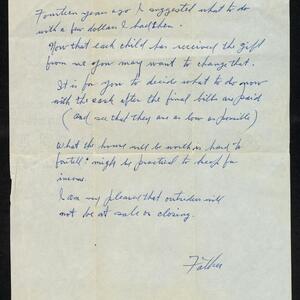 Fourteen years ago I suggested what to do
with a few dollars I had then.
Now that each child has received the gift
from me you may want to change that.
It is for you to decide what to do now
with the cash after the final bills are paid
(and see that they are as low as possible)
What the house will be worth is hard to
foretell might be practical to keep for
income.
I am very pleased that outsiders will
not be at sale or closing.
Father